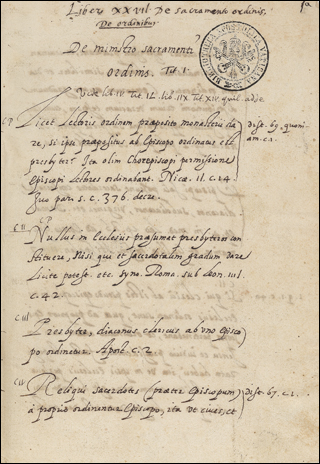 Liber XXVII De sacramento ordinis.
De ordinibus
De ministro sacramenti
ordinis. Tit. I.
C I
Licet Lectoris ordinem præposito monasterii da
re, si ipse præpositus ab Episcopo ordinatus est
presbyter? Ita olim Chorepiscopi permissione
Episcopi Lectores ordinabant. Nicæ. II. c. 14.
Suo par. s. c. 376. decre.
dist. 69. quoni
am. c. 1.
C II
Nullus in Ecclesiis præsumat presbyteros con
stituere, Nisi qui et sacerdotalem gradum dare
Licite potest. etc. syno. Roma. sub Leon. IIII.
c. 42.
C III
Presbyter, diaconus clericus ab uno Episco
po ordinetur. Apost. c. 2.
C IV
Reliqui sacerdotes (præter Episcopum)
a proprio ordinentur Episcopo, ita ut cives, et
Dist. 67. c. 1.
BIBLIOTHECA APOSTOLICA VATICANA